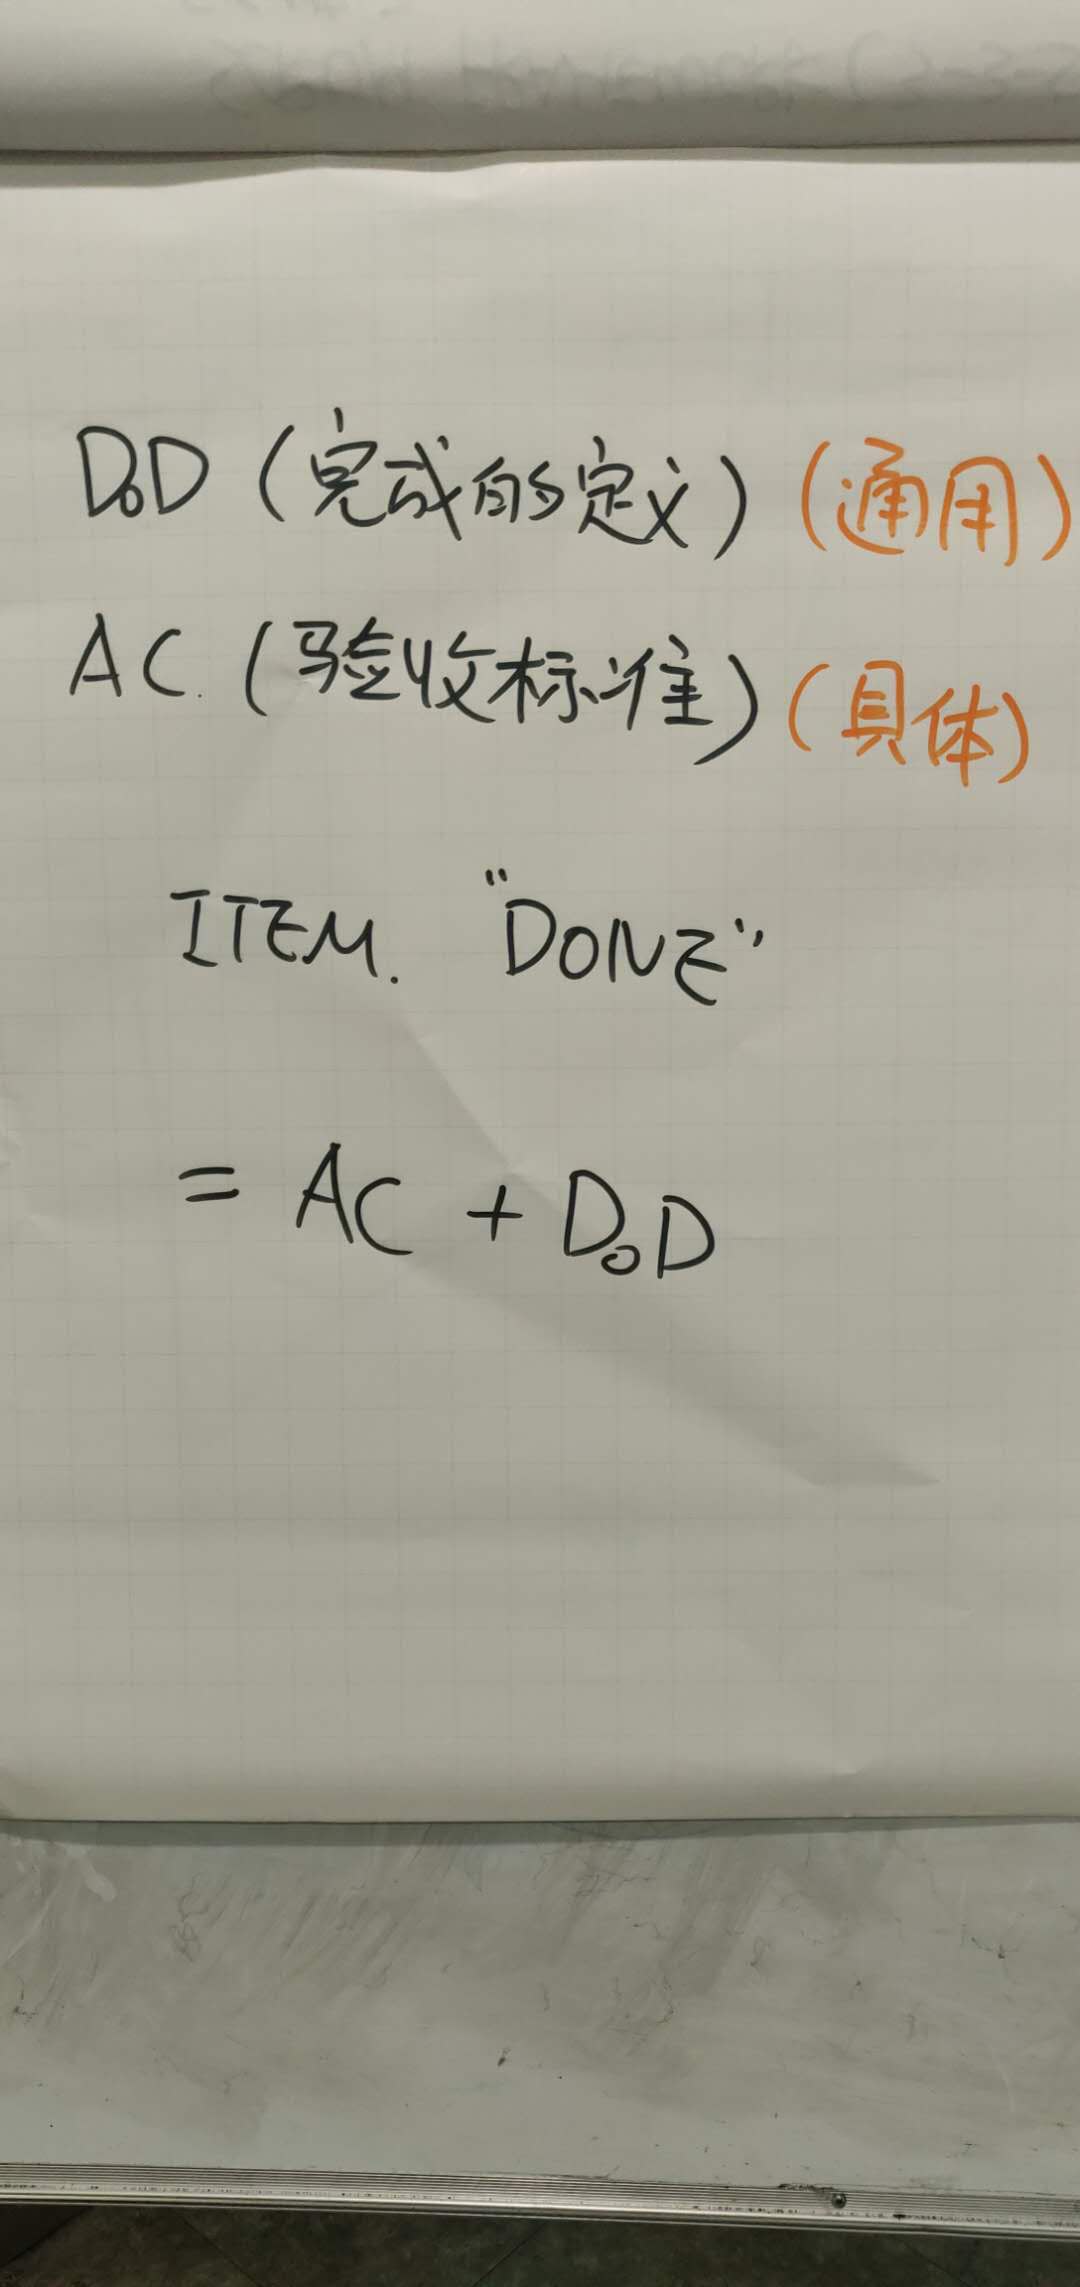 DoD (完成的定义) (通用)
AC. (验收标准) (具体)
ITEM. "DONE"
= AC + DoD